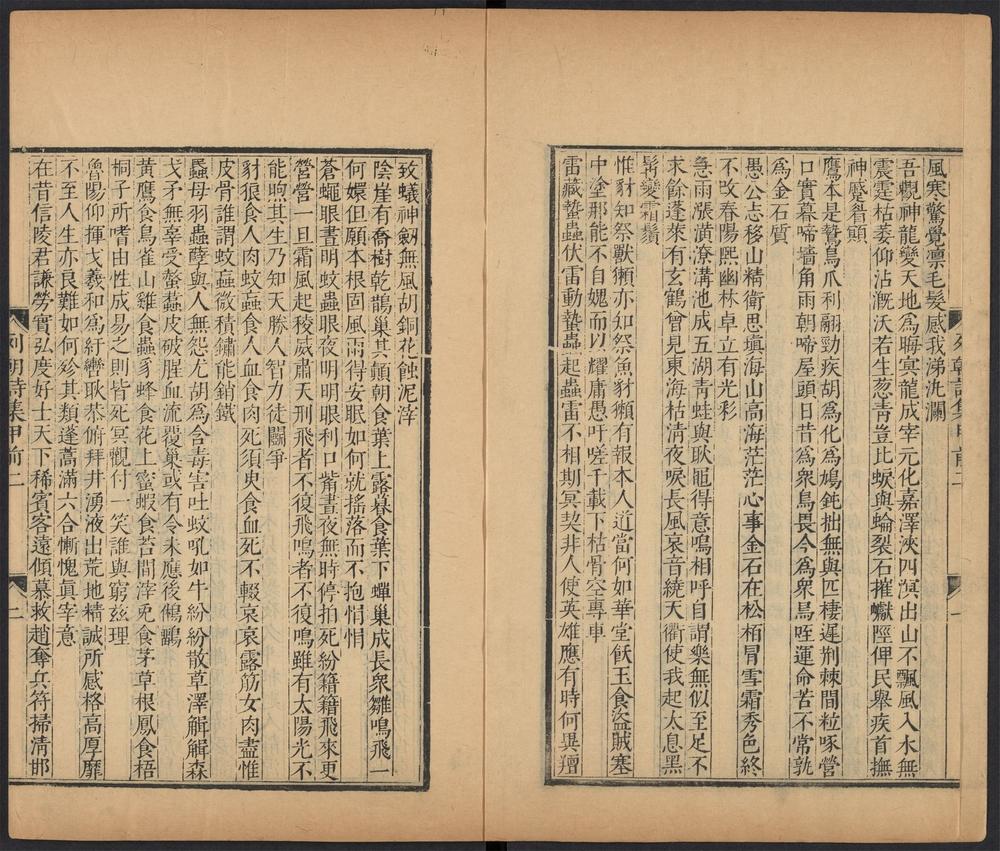 風寒驚覺凛毛髮感我涕汍瀾
吾觀神龍變天地爲晦冥龍成宰元化嘉澤浹四溟出山不飄風入水無
震霆枯萎仰沾漑沃若生葱靑豈比蜧與蜦裂石摧巘陘俾民舉疾首撫
神蹙䚮顚
鷹本是鷙鳥爪利翮勁疾胡爲化爲鳩鈍拙無與匹棲遲荆棘間粒啄營
口實暮啼墻角雨朝啼屋頭日昔爲衆鳥畏今爲衆鳥咥運命苦不常孰
爲金石質
愚公志移山精衛思塡海山高海茫茫心事金石在松栢冒雪霜秀色終
不改春陽煕幽林卓立有光彩
急雨漲潢潦溝池成五湖靑蛙與耿黽得意鳴相呼自謂樂無似至足不
求餘蓬萊有玄鶴曾見東海枯淸夜唳長風哀音繞天衢使我起太息黑
髯變霜鬚
惟豺知祭獸獺亦知祭魚豺獺有報本人道當何如華堂飫玉食盜賊塞
中塗那能不自媿而以耀庸愚吁嗟千載下枯骨空專車
雷藏蟄蟲伏雷動蟄蟲起蟲雷不相期冥契非人使英雄應有時何異羶
列朝詩集甲前二
一
致蟻神劒無風胡銅花蝕泥滓
陰崖有喬樹乾鵲巢其顚朝食葉上露暮食葉下蟬巢成長衆雛鳴飛一
何嬛但願本根固風雨得安眠如何就搖落而不抱悁悁
蒼蠅眼晝明蚊蟲眼夜明明眼利口觜晝夜無時停拍死紛籍籍飛來更
營營一旦霜風起稜威肅天刑飛者不復飛鳴者不復鳴雖有太陽光不
能煦其生乃知天勝人智力徒鬭爭
豺狼食人肉蚊蝱食人血食肉死須臾食血死不輟哀哀露筋女肉盡惟
皮骨誰謂蚊蝱微積鏽能銷鐵
蟁母羽蟲孽與人無怨尤胡爲含毒害吐蚊吼如牛紛紛散草澤觧觧森
戈矛無辜受螫蠚皮破腥血流覆巢或有令未應後鵂鶹
黃鷹食鳥雀山雞食蟲豸蜂食花上蜜蝦食苔間滓兎食茅草根鳳食梧
桐子所嗜由性成易之則皆死冥觀付一笑誰與窮玆理
魯陽仰揮戈羲和爲紆轡耿恭俯拜井湧液出荒地精誠所感格高厚靡
不至人生亦良難如何殄其類蓬蒿滿六合慚愧眞宰意
在昔信陵君謙勞實弘度好士天下稀賓客遠傾慕救趙奪兵符掃淸邯
列朝詩集甲前二
二